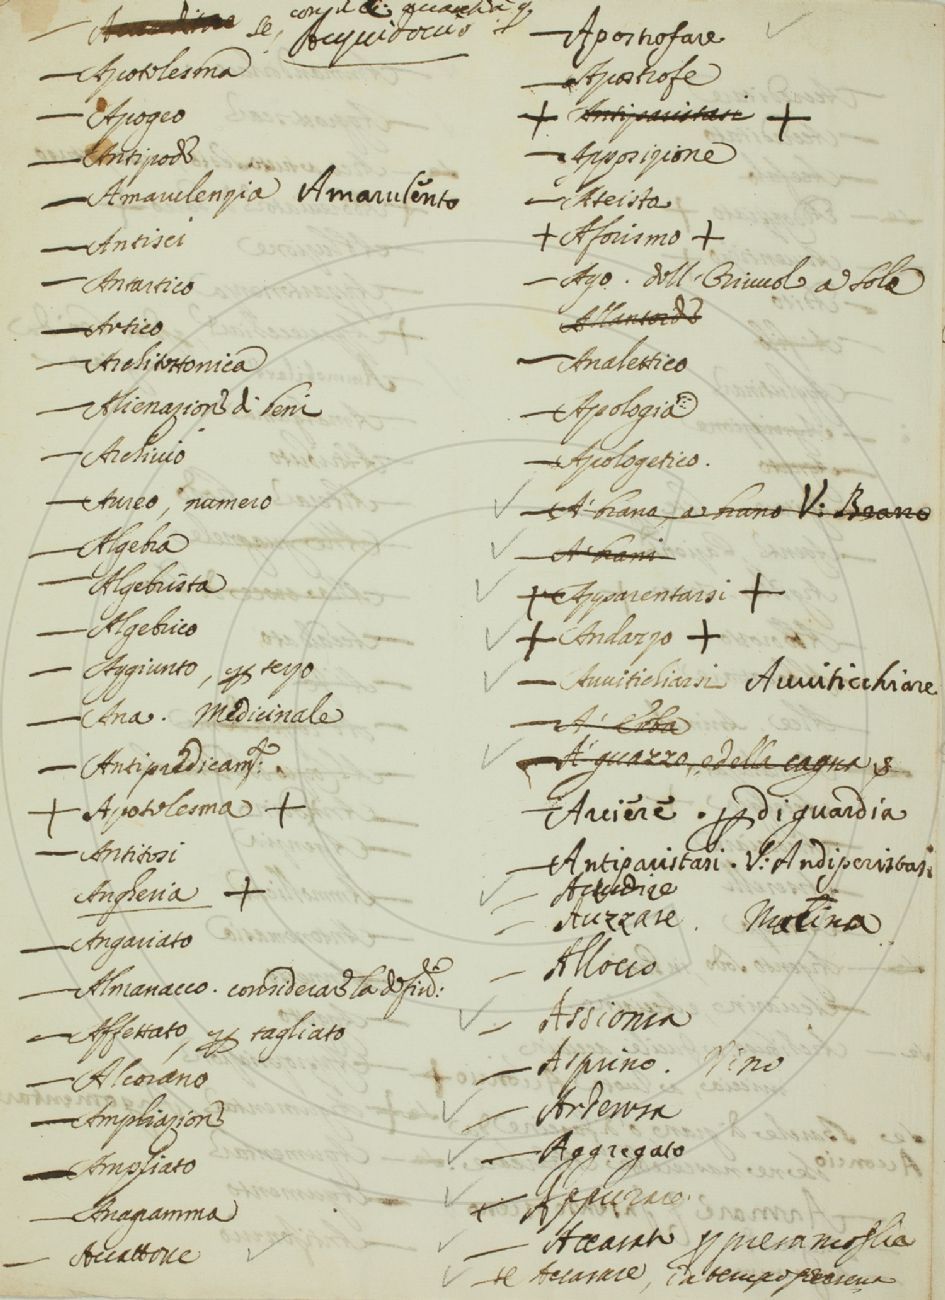 Acquidoccio
— Apotelesma
— Apogeo
— Antipode
— Amarulenzia Amarulento
— Antisci
— Antartico
— Artico
— Architettonica
— Alienazione di beni
— Archivio
— Aureo, numero
— Algebra
— Algebrista
— Algebrico
— Aggiunto, terzo
— Ana. Medicinale
— Antipredicam.to:
+ Apotelesma +
— Antitesi
Angheria +
— Angariato
— Almanacco. considerare la
— Affettato, tagliato
— Alcorano
— Ampliazione
— Ampliato
— Anagramma
— Accattone
— Apostrofare
— Apostrofe
+ Antiparistasi +
— Apposizione
— Ateista
+ Aforismo +
— Ago. dell' a Sole
Allantoide
— Analettico
— Apologia
— Apologetico.
— A' brano, a brano V: Brano
— A' brani
+ Apparentarsi +
+ Andazzo +
— Avviticchiarsi Avviticchiare
— A' Erba
— A' guazzo, e della cagna
— Arciere. di guardia
— Antiparistasi. V: Andiperistasi
— Accudire
— Auzzare. Matina
— Allocco
— Assioma
— Asprino. Vino
— Ardenza
— Aggregato
× Appurare.
— Accasato
— se Accasare,